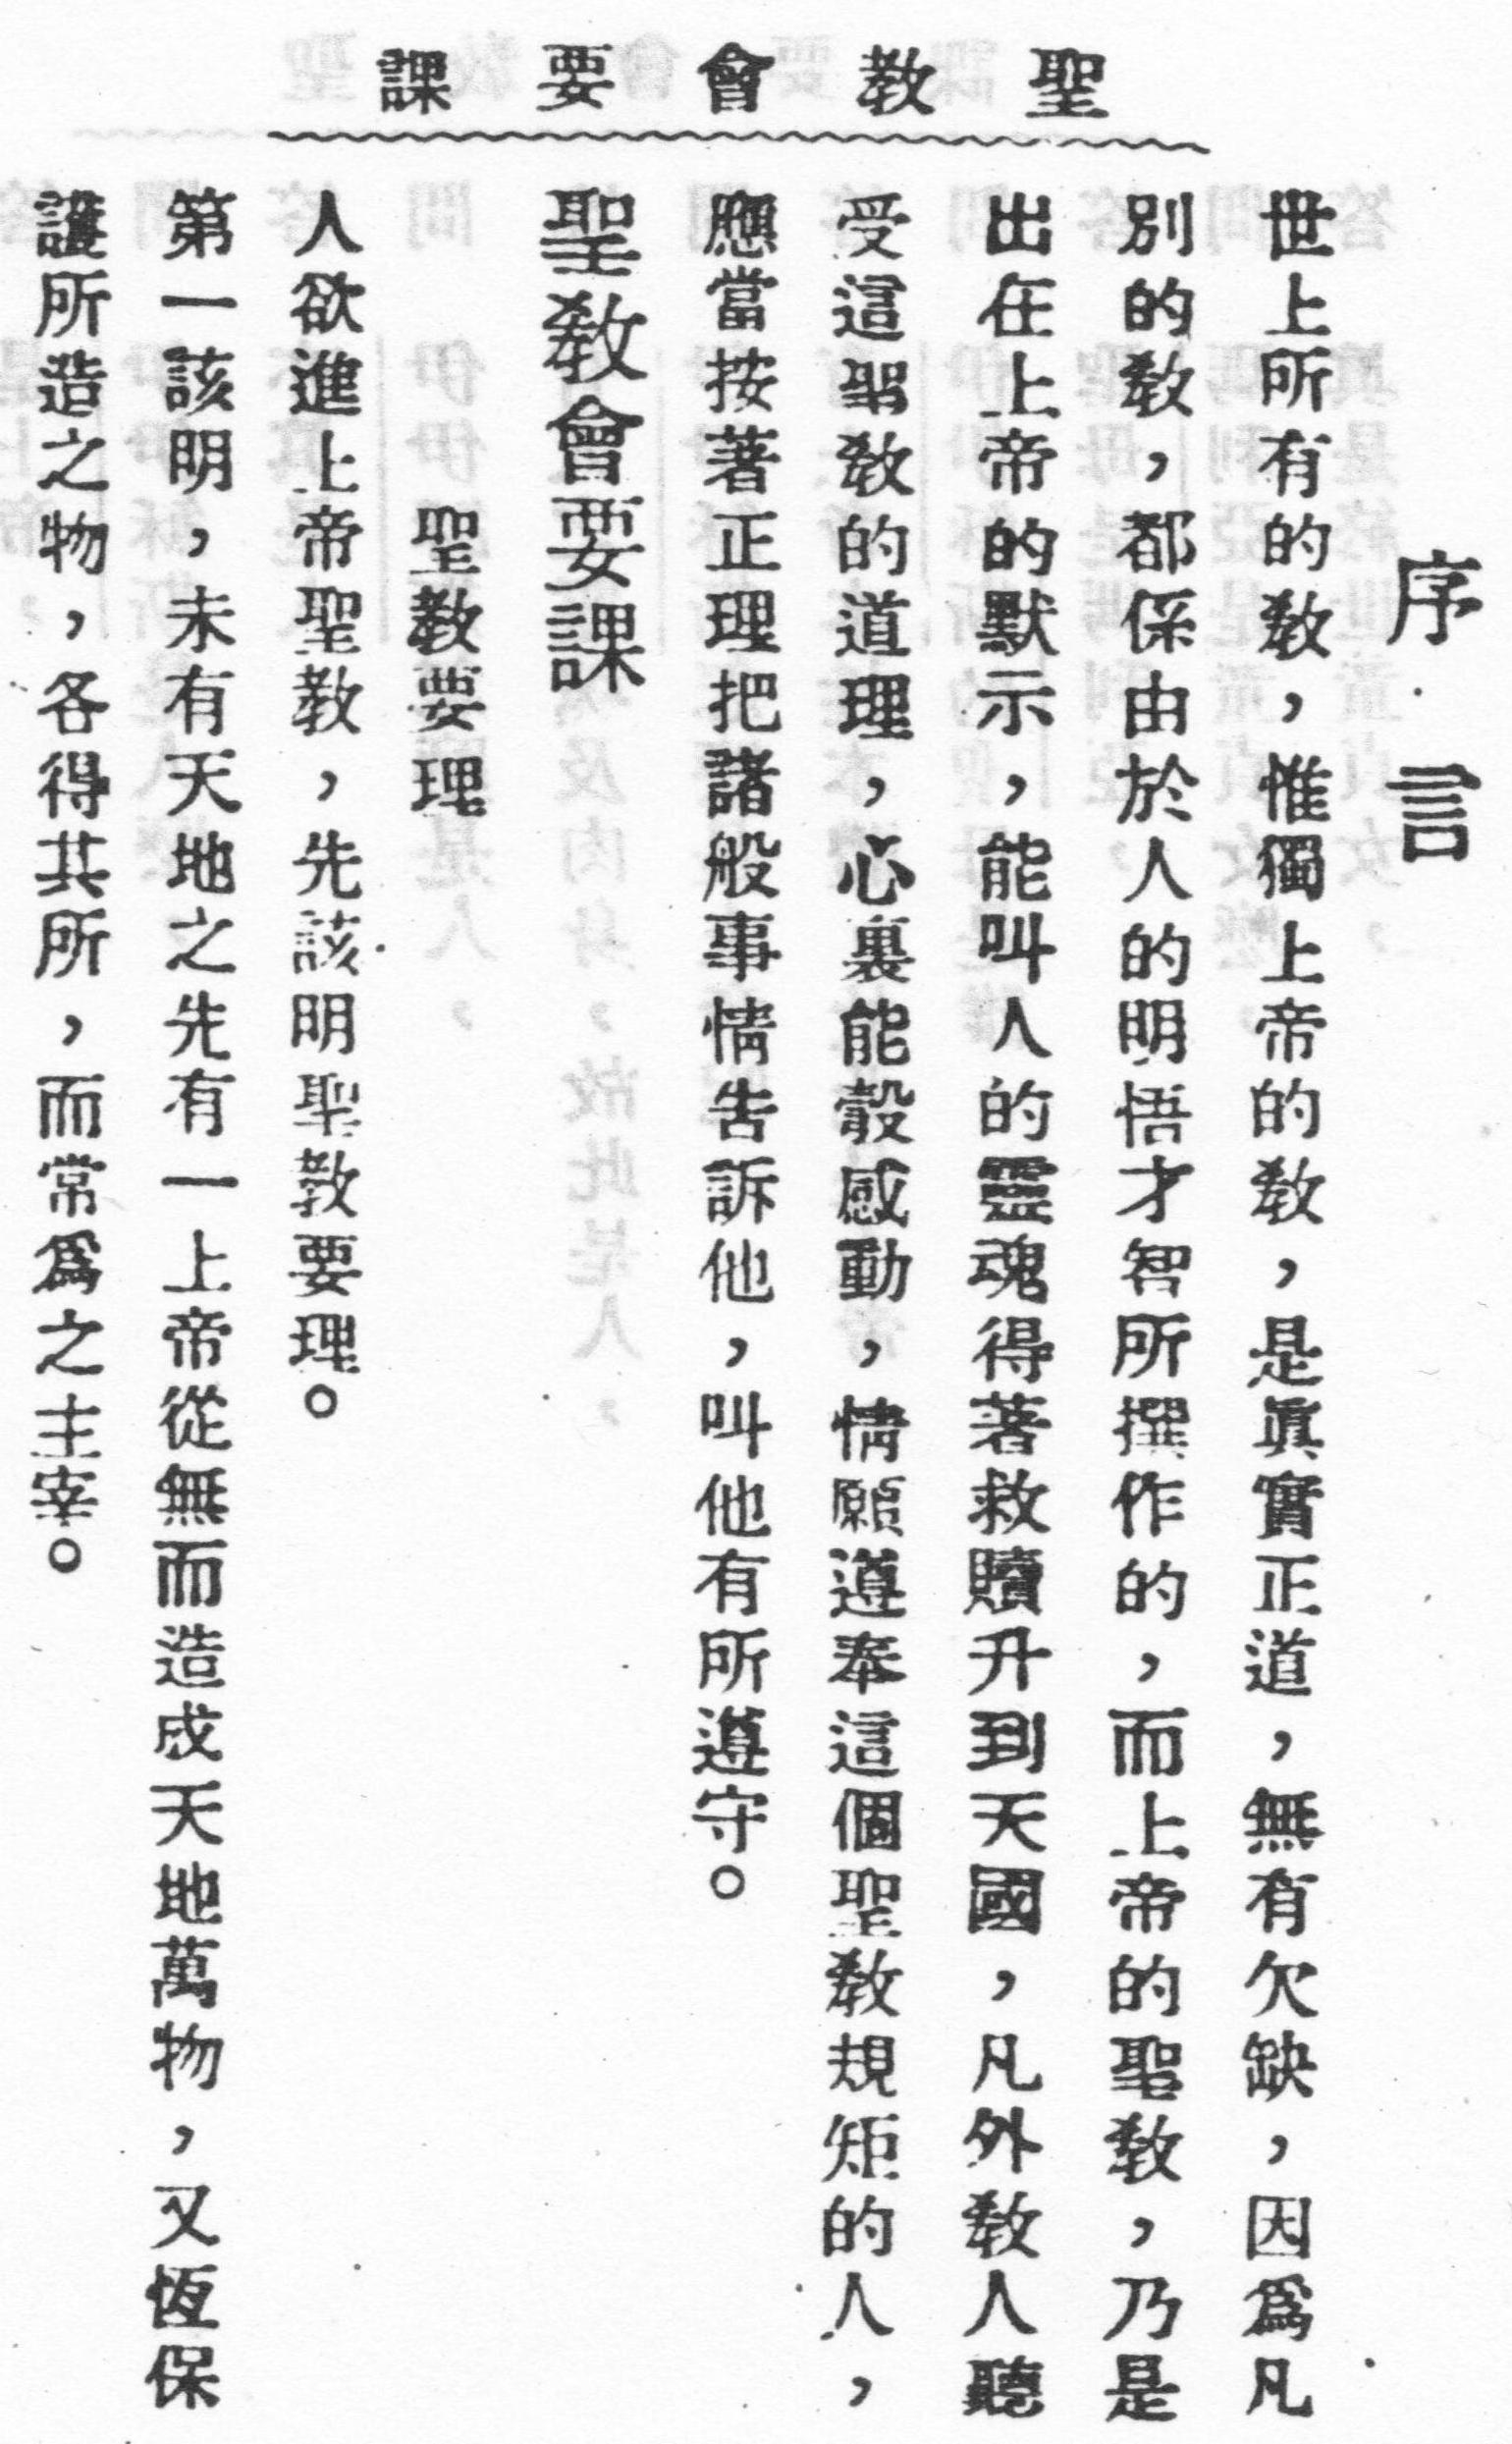 聖教會要課
序言
世上所有的教，惟獨上帝的教，是眞實正道，無有欠缺，因爲凡
別的教，都係由於人的明悟才智所撰作的，而上帝的聖教，乃是
出在上帝的默示，能叫人的靈魂得著救贖升到天國，凡外教人聽
受這聖教的道理，心裏能彀感動，情願遵奉這個聖教規矩的人，
應當按著正理把諸般事情告訴他，叫他有所遵守。
聖教會要課
聖教要理
人欲進上帝聖教，先該明聖教要理。
第一該明，未有天地之先有一上帝從無而造成天地萬物，又恆保
護所造之物，各得其所，而常爲之主宰。